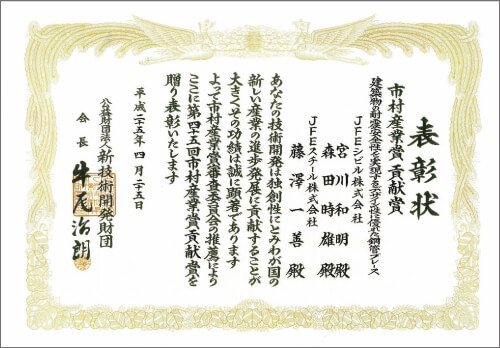 表彰状
市村産業賞 貢献賞
建築物の耐震安全性を実現するデザイン性に優れた鋼管ブレース
JFEシビル株式会社
宮川和明殿
森田時雄殿
JFEスチール株式会社
藤澤一善殿
あなたの技術開発は独創性にとみわが国の
新しい産業の進歩発展に貢献することが
大きくその功績は誠に顕著であります
よって市村産業賞審査委員会の推薦により
ここに第四十五回市村産業賞貢献賞を
贈り表彰いたします
平成二十五年四月二十五日
公益財団法人新技術開発財団
会長 牛尾治朗